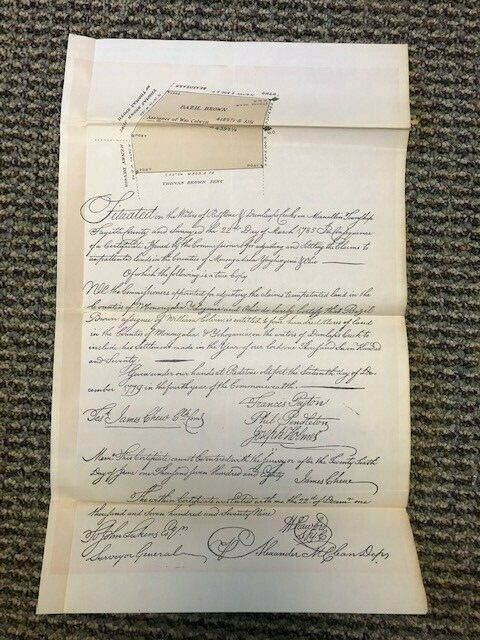 BAZIL BROWN
Assignee of Wm Colvin
POST
POST
THOMAS BROWN SENR
Situated on the Waters of Redstone & Dunlaps Creeks in Menallen Township
Fayette County and Surveyed the 22d Day of March 1785 In Consequence
of a Certificate Issued by the Commissioners for adjusting and Settling the claims to
unpatented lands in the Counties of Monongalia Yohogania & Ohio
Of which the following is a true Copy
We the Commissioners appointed for adjusting the claims to unpatented land in the
Counties of Monongalia Yohogania and Ohio do hereby certify that Bazil
Brown assignee of William Colvin is entitled to four hundred acres of land
in the County of Monongalia & Yohogania on the waters of Dunlaps Creek to
include his Settlement made in the Year of our Lord one Thousand Seven Hundred
and Seventy
Given under our hands at Redstone old fort the Sixteenth day of De-
cember 1779 in the fourth year of the Commonwealth
Frances Peyton
Test James Chew
Phil Pendleton
Joseph Holmes
Memo This Certificate cannot be entered with the Surveyor after the Twenty Sixth
Day of June one Thousand Seven Hundred and Eighty
James Chew
The within Certificate is entered with me the 22d of Decemr one
thousand and Seven Hundred and Seventy Nine
W Crawford
To John Lukens Esqr
Surveyor General
Alexander McClean Depy